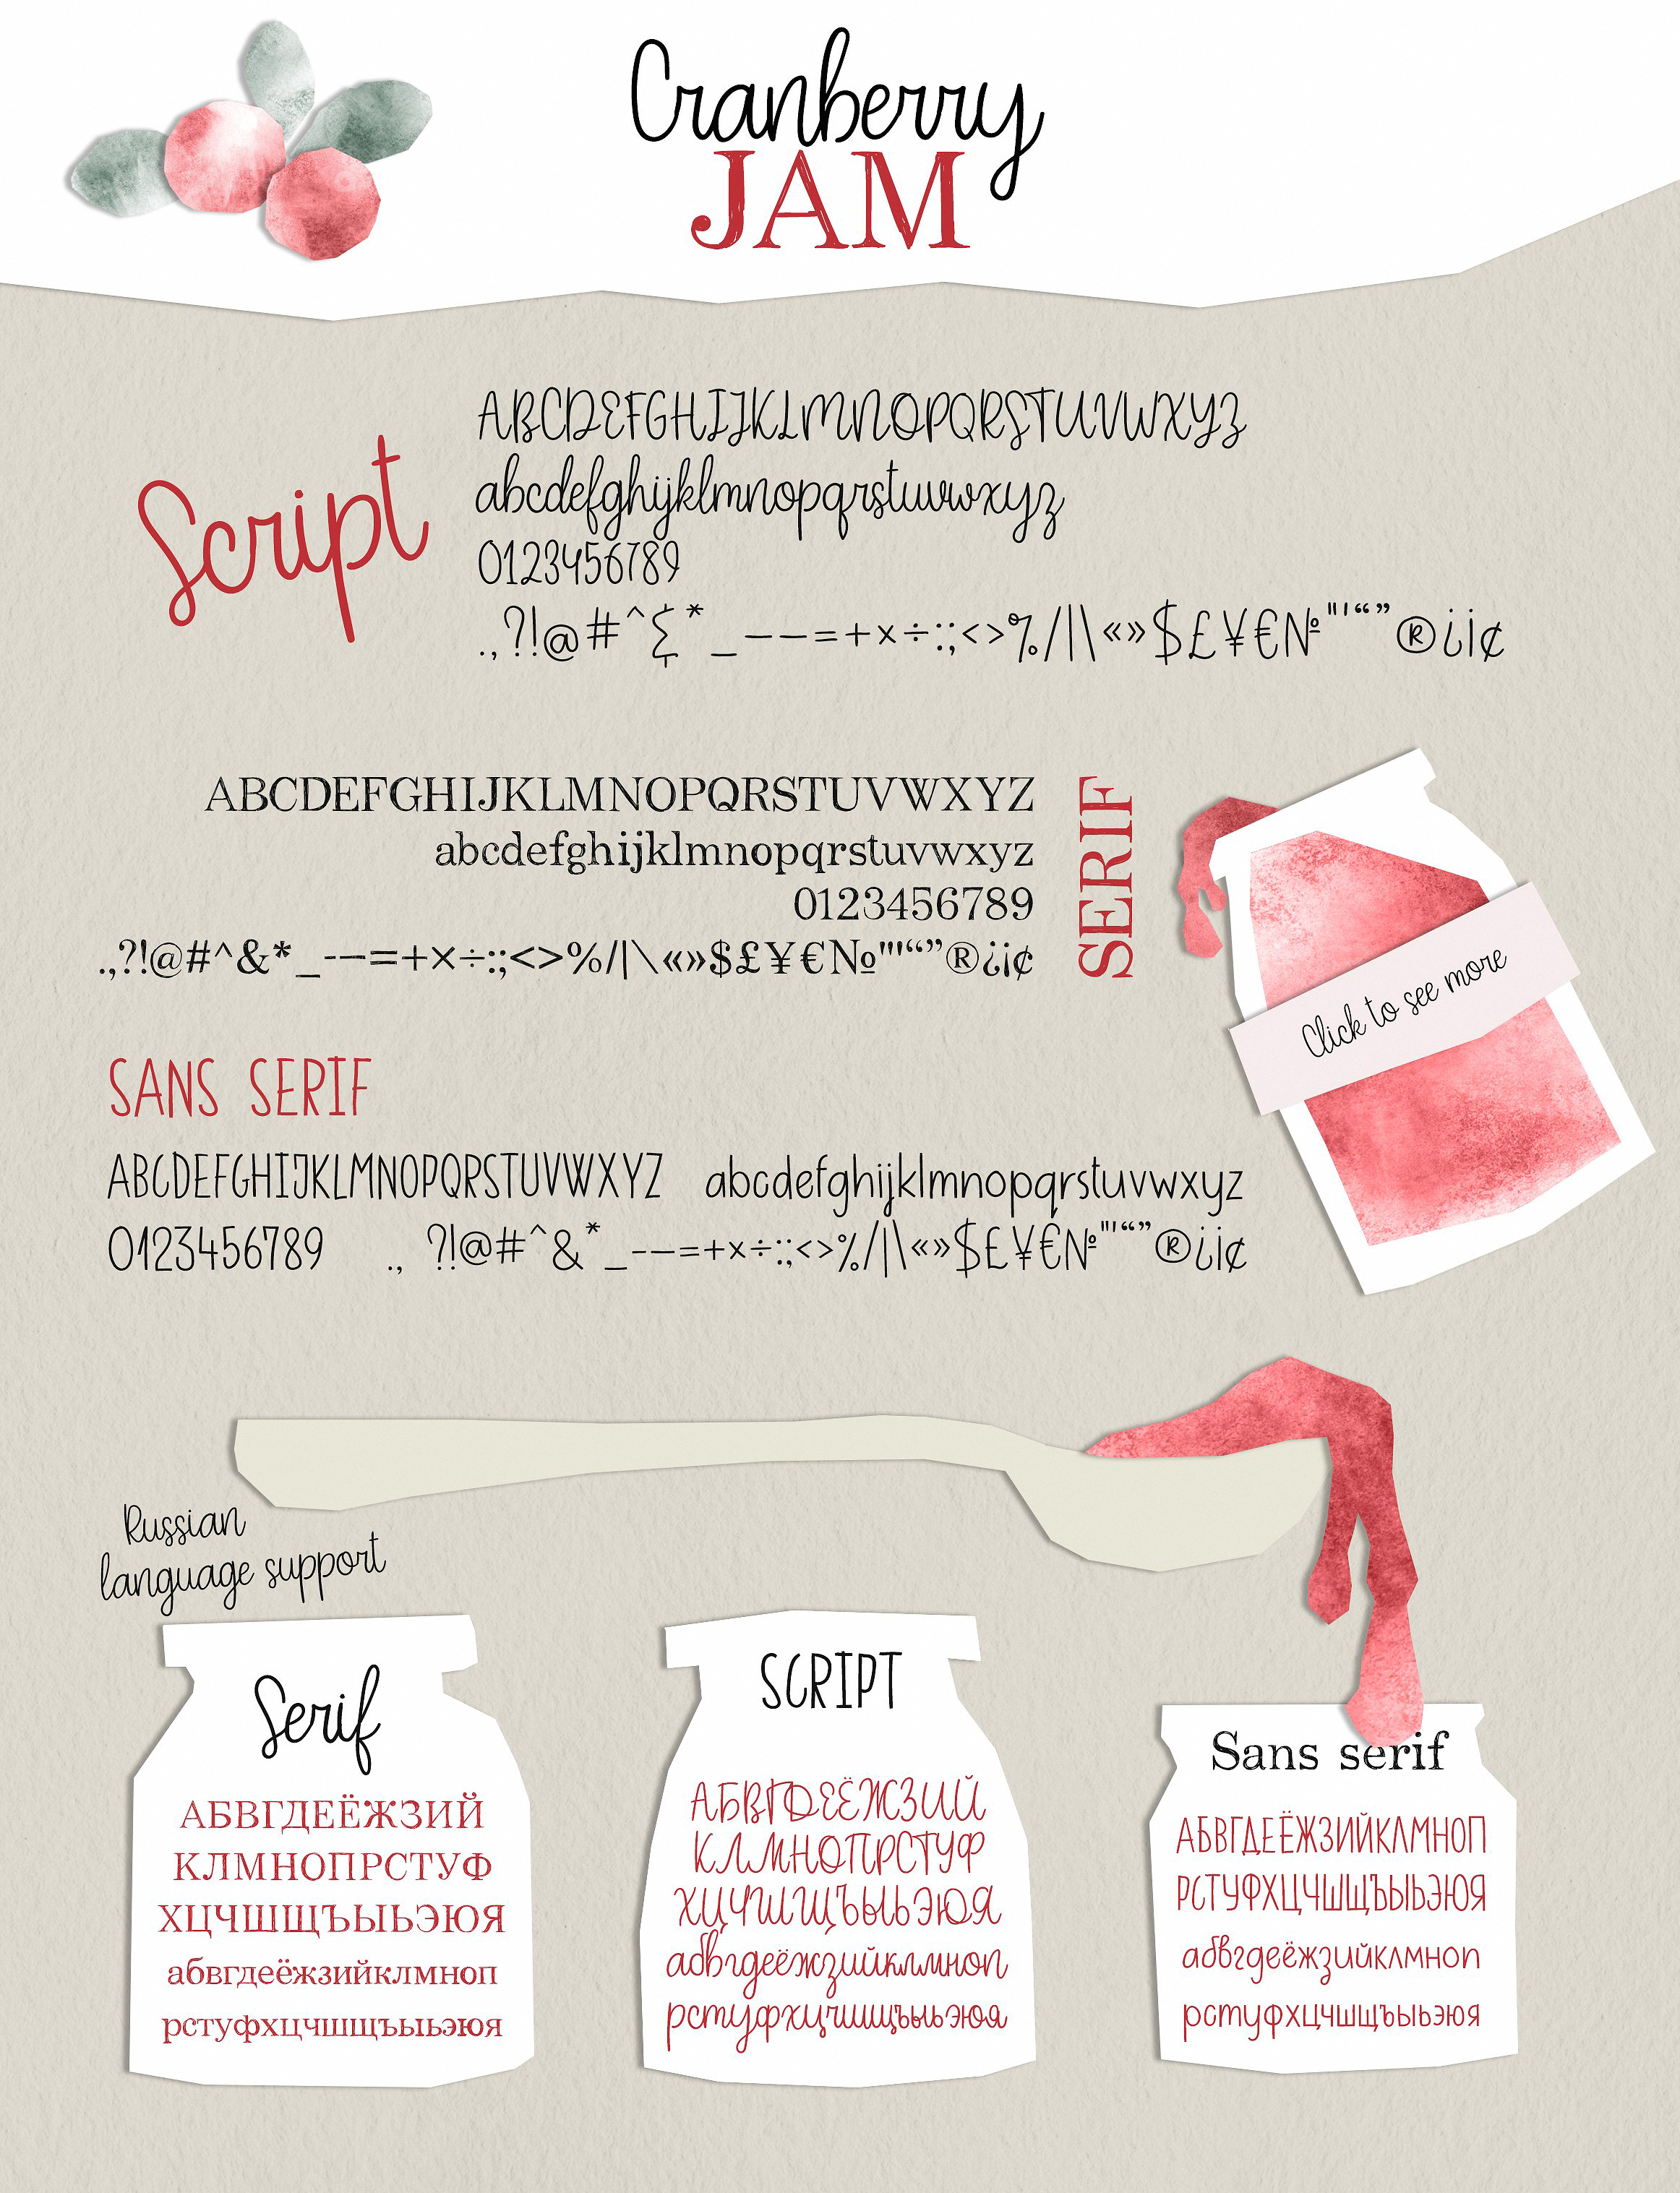 Cranberry
JAM
Script
ABCDEFGHIJKLMNOPQRSTUVWXYZ
abcdefghijklmnopqrstuvwxyz
0123456789
.,?!@#^&*_–—=+×÷:;<>%/|\«»$£¥€№"'“”®¿¡¢
ABCDEFGHIJKLMNOPQRSTUVWXYZ
abcdefghijklmnopqrstuvwxyz
0123456789
.,?!@#^&*_-–—=+×÷:;<>%/|\«»$£¥€№"'“”®¿¡¢
SERIF
Click to see more
SANS SERIF
ABCDEFGHIJKLMNOPQRSTUVWXYZ abcdefghijklmnopqrstuvwxyz
0123456789 ., ?!@#^&*_-–—=+×÷:;<>%/|\«»$£¥€№"'“”®¿¡¢
Russian
language support
Serif
АБВГДЕЁЖЗИЙ
КЛМНОПРСТУФ
ХЦЧШЩЪЫЬЭЮЯ
абвгдеёжзийклмноп
рстуфхцчшщъыьэюя
SCRIPT
АБВГДЕЁЖЗИЙ
КЛМНОПРСТУФ
ХЦЧШЩЪЫЬЭЮЯ
абвгдеёжзийклмноп
рстуфхцчшщъыьэюя
Sans serif
АБВГДЕЁЖЗИЙКЛМНОП
РСТУФХЦЧШЩЪЫЬЭЮЯ
абвгдеёжзийклмноп
рстуфхцчшщъыьэюя